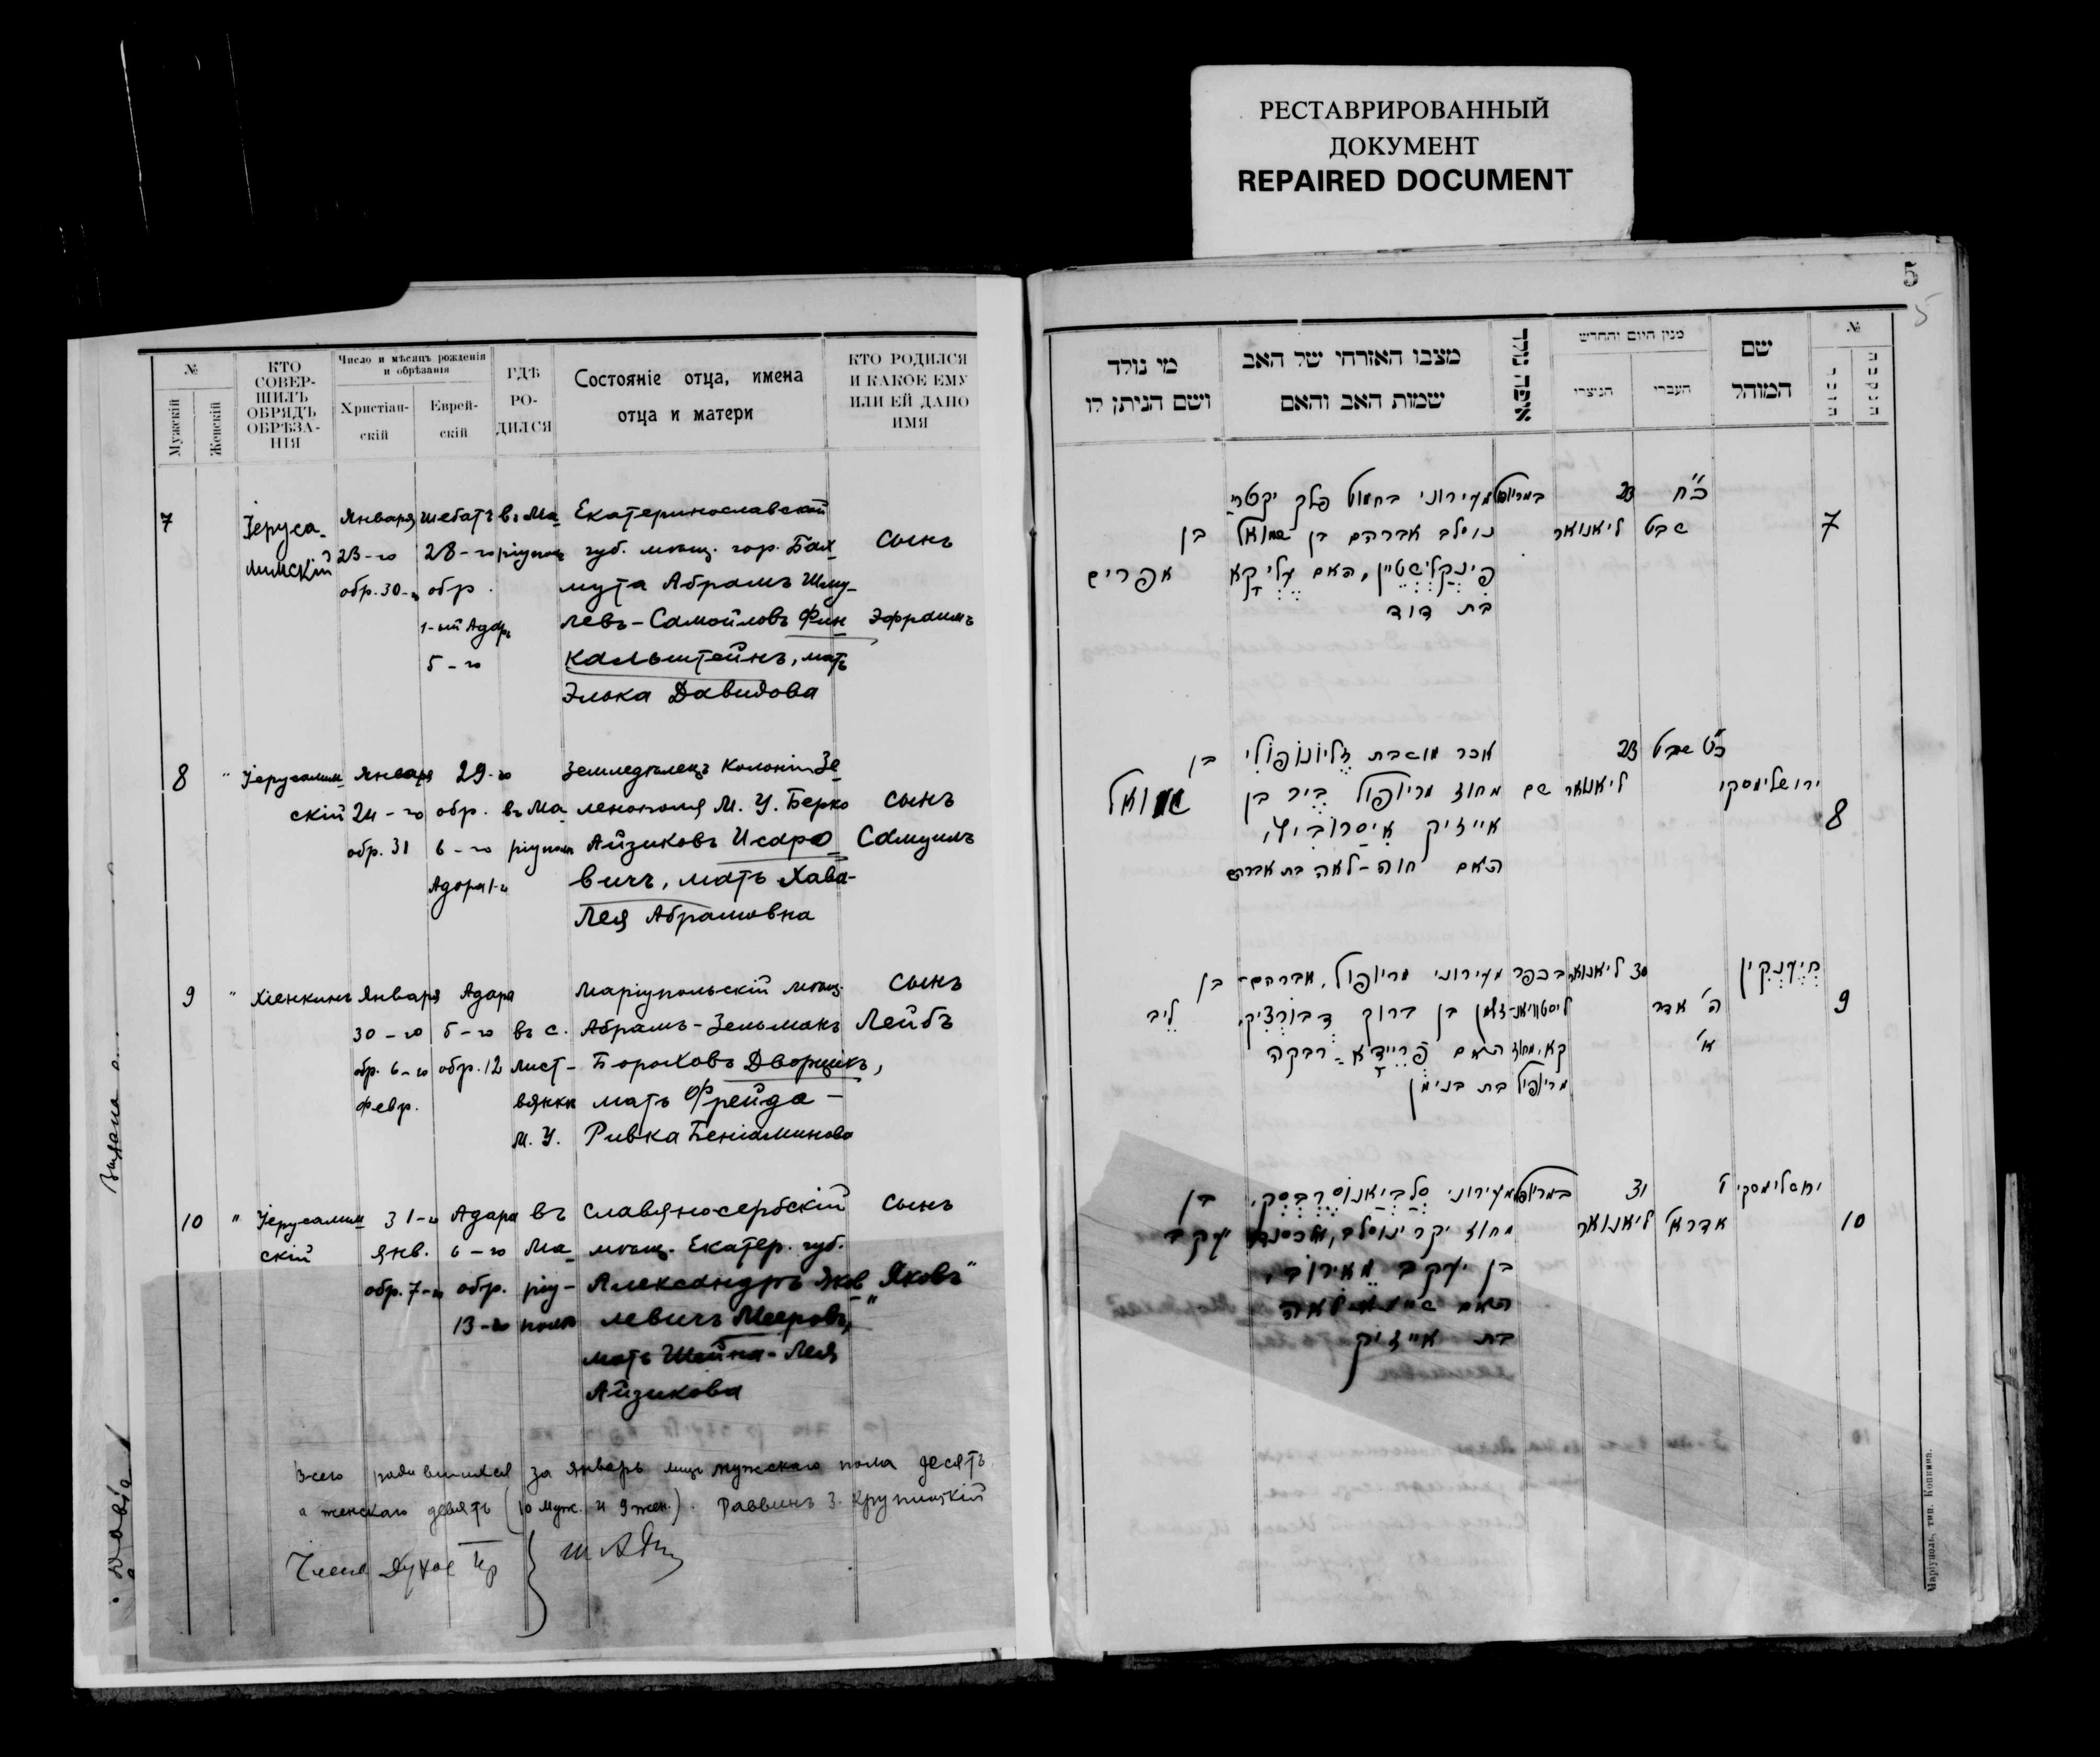 РЕСТАВРИРОВАННЫЙ
ДОКУМЕНТ
REPAIRED DOCUMENT
№
Мужескій
Женскій
КТО
СОВЕР-
ШИЛЪ
ОБРЯДЪ
ОБРѢЗА-
НІЯ
Число и мѣсяцъ рожденія
и обрѣзанія
Христіан-
скій
Еврей-
скій
ГДѢ
РО-
ДИЛСЯ
Состояніе отца, имена
отца и матери
КТО РОДИЛСЯ
И КАКОЕ ЕМУ
ИЛИ ЕЙ ДАНО
ИМЯ
7
Іеруса-
лимскій
Января
23-го
обр. 30-го
Шебатъ
28-го
обр.
1-ый Адаръ
5-го
въ Ма
ріупол
Екатеринославской
губ. мѣщ. гор. Бах-
мута Абрамъ Шму-
левъ-Самойловъ Фин
кальштейнъ, мать
Элька Давидова
сынъ
Эфраимъ
8
"
Іерусалим
скій
Января
24-го
обр. 31
29-го
обр.
6-го
Адара 1-й
въ Ма
ріупол
Земледѣлецъ колоніи Зе
ленополя М. У. Берко
Айзиковъ Исаро
вичъ, мать Хава-
Лея Абрамовна
сынъ
Самуилъ
9
"
Хіенкинъ
Января
30-го
обр. 6-го
февр.
Адара
5-го
обр. 12
въ с.
Лист-
вянки
М. У.
Маріупольскій мѣщ.
Абрамъ-Зельманъ
Бороховъ Дворцикъ,
мать Фрейда-
Ривка Беніаминова
сынъ
Лейбъ
10
"
Іерусалим
скій
31-го
янв.
обр. 7-го
Адара
6-го
обр.
13-го
въ
Ма
ріу-
полѣ
Славяносербскій
мѣщ. Екатер. губ.
Александръ Яков
левичъ Мееровъ,
мать Шейна-Лея
Айзикова
сынъ
Яковъ"
Всего родившихся за Январь лицъ мужскаго пола десять,
а женскаго девять (10 муж. и 9 жен.). Раввинъ З. Крупицкій
5
5
מי נולד
ושם הניתן לו
מצבו האזרחי של האב
שמות האב והאם
איפה נולד
מנין היום והחדש
הנוצרי
העברי
שם
המוהל
№
7
כ"ח
שבט
23
ליאנואר
במריופול
מעירוני בחמוט פלך יקטרי
נוסלב אברהם בן שמואל
פינקלשטיין, האם עליקא
בת דוד
בן
אפרים
8
ירושלימסקי
כ"ט שבט
23
ליאנואר
שם
אכר מושבת זליונופולי
מחוז מריופול בער בן
אייזיק איסרוביץ,
האם חוה-לאה בת אברהם
בן
שמואל
9
חיענקין
ה' אדר
א'
30 ליאנואר
בכפר
ליסטוויאנ-
קא, מחוז
מריופול
מעירוני מריופול, אברהם-
זלמן בן ברוך דבורציק,
האם פריידא-רבקה
בת בנימן
בן
ליב
10
ירושלימסקי
ו'
אדר א'
31
ליאנואר
במריופול
מעירוני סלביאנוסרבסק,
מחוז יקרינוסלב, אלכסנדר
בן יעקב מאירוב,
האם שיינא לאה
בת אייזיק
בן
יעקב
Маріуполь, тип. Копкина.